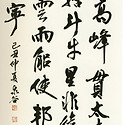 高峰貫太
斗牛星非
雲雨能使邦
寧
己丑仲夏